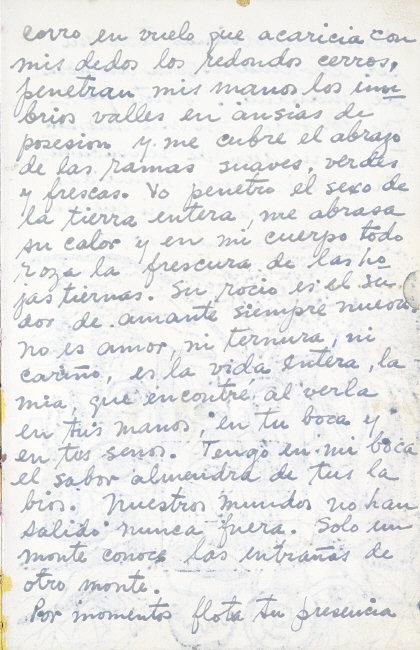 corro en vuelo que acaricia con
mis dedos los redondos cerros,
penetran mis manos los um-
brios valles en ansias de
posesion y me cubre el abrazo
de las ramas suaves, verdes
y frescas. Yo penetro el sexo de
la tierra entera, me abrasa
su calor y en mi cuerpo todo
roza la frescura de las ho
jas tiernas. Su rocio es el su-
dor de amante siempre nuevo.
no es amor, ni ternura, ni
cariño, es la vida entera, la
mia, que encontré al verla
en tus manos, en tu boca y
en tus senos. Tengo en mi boca
el sabor almendra de tus la
bios. Nuestros mundos no han
salido nunca fuera. Solo un
monte conoce las entrañas de
otro monte.
Por momentos flota tu presencia